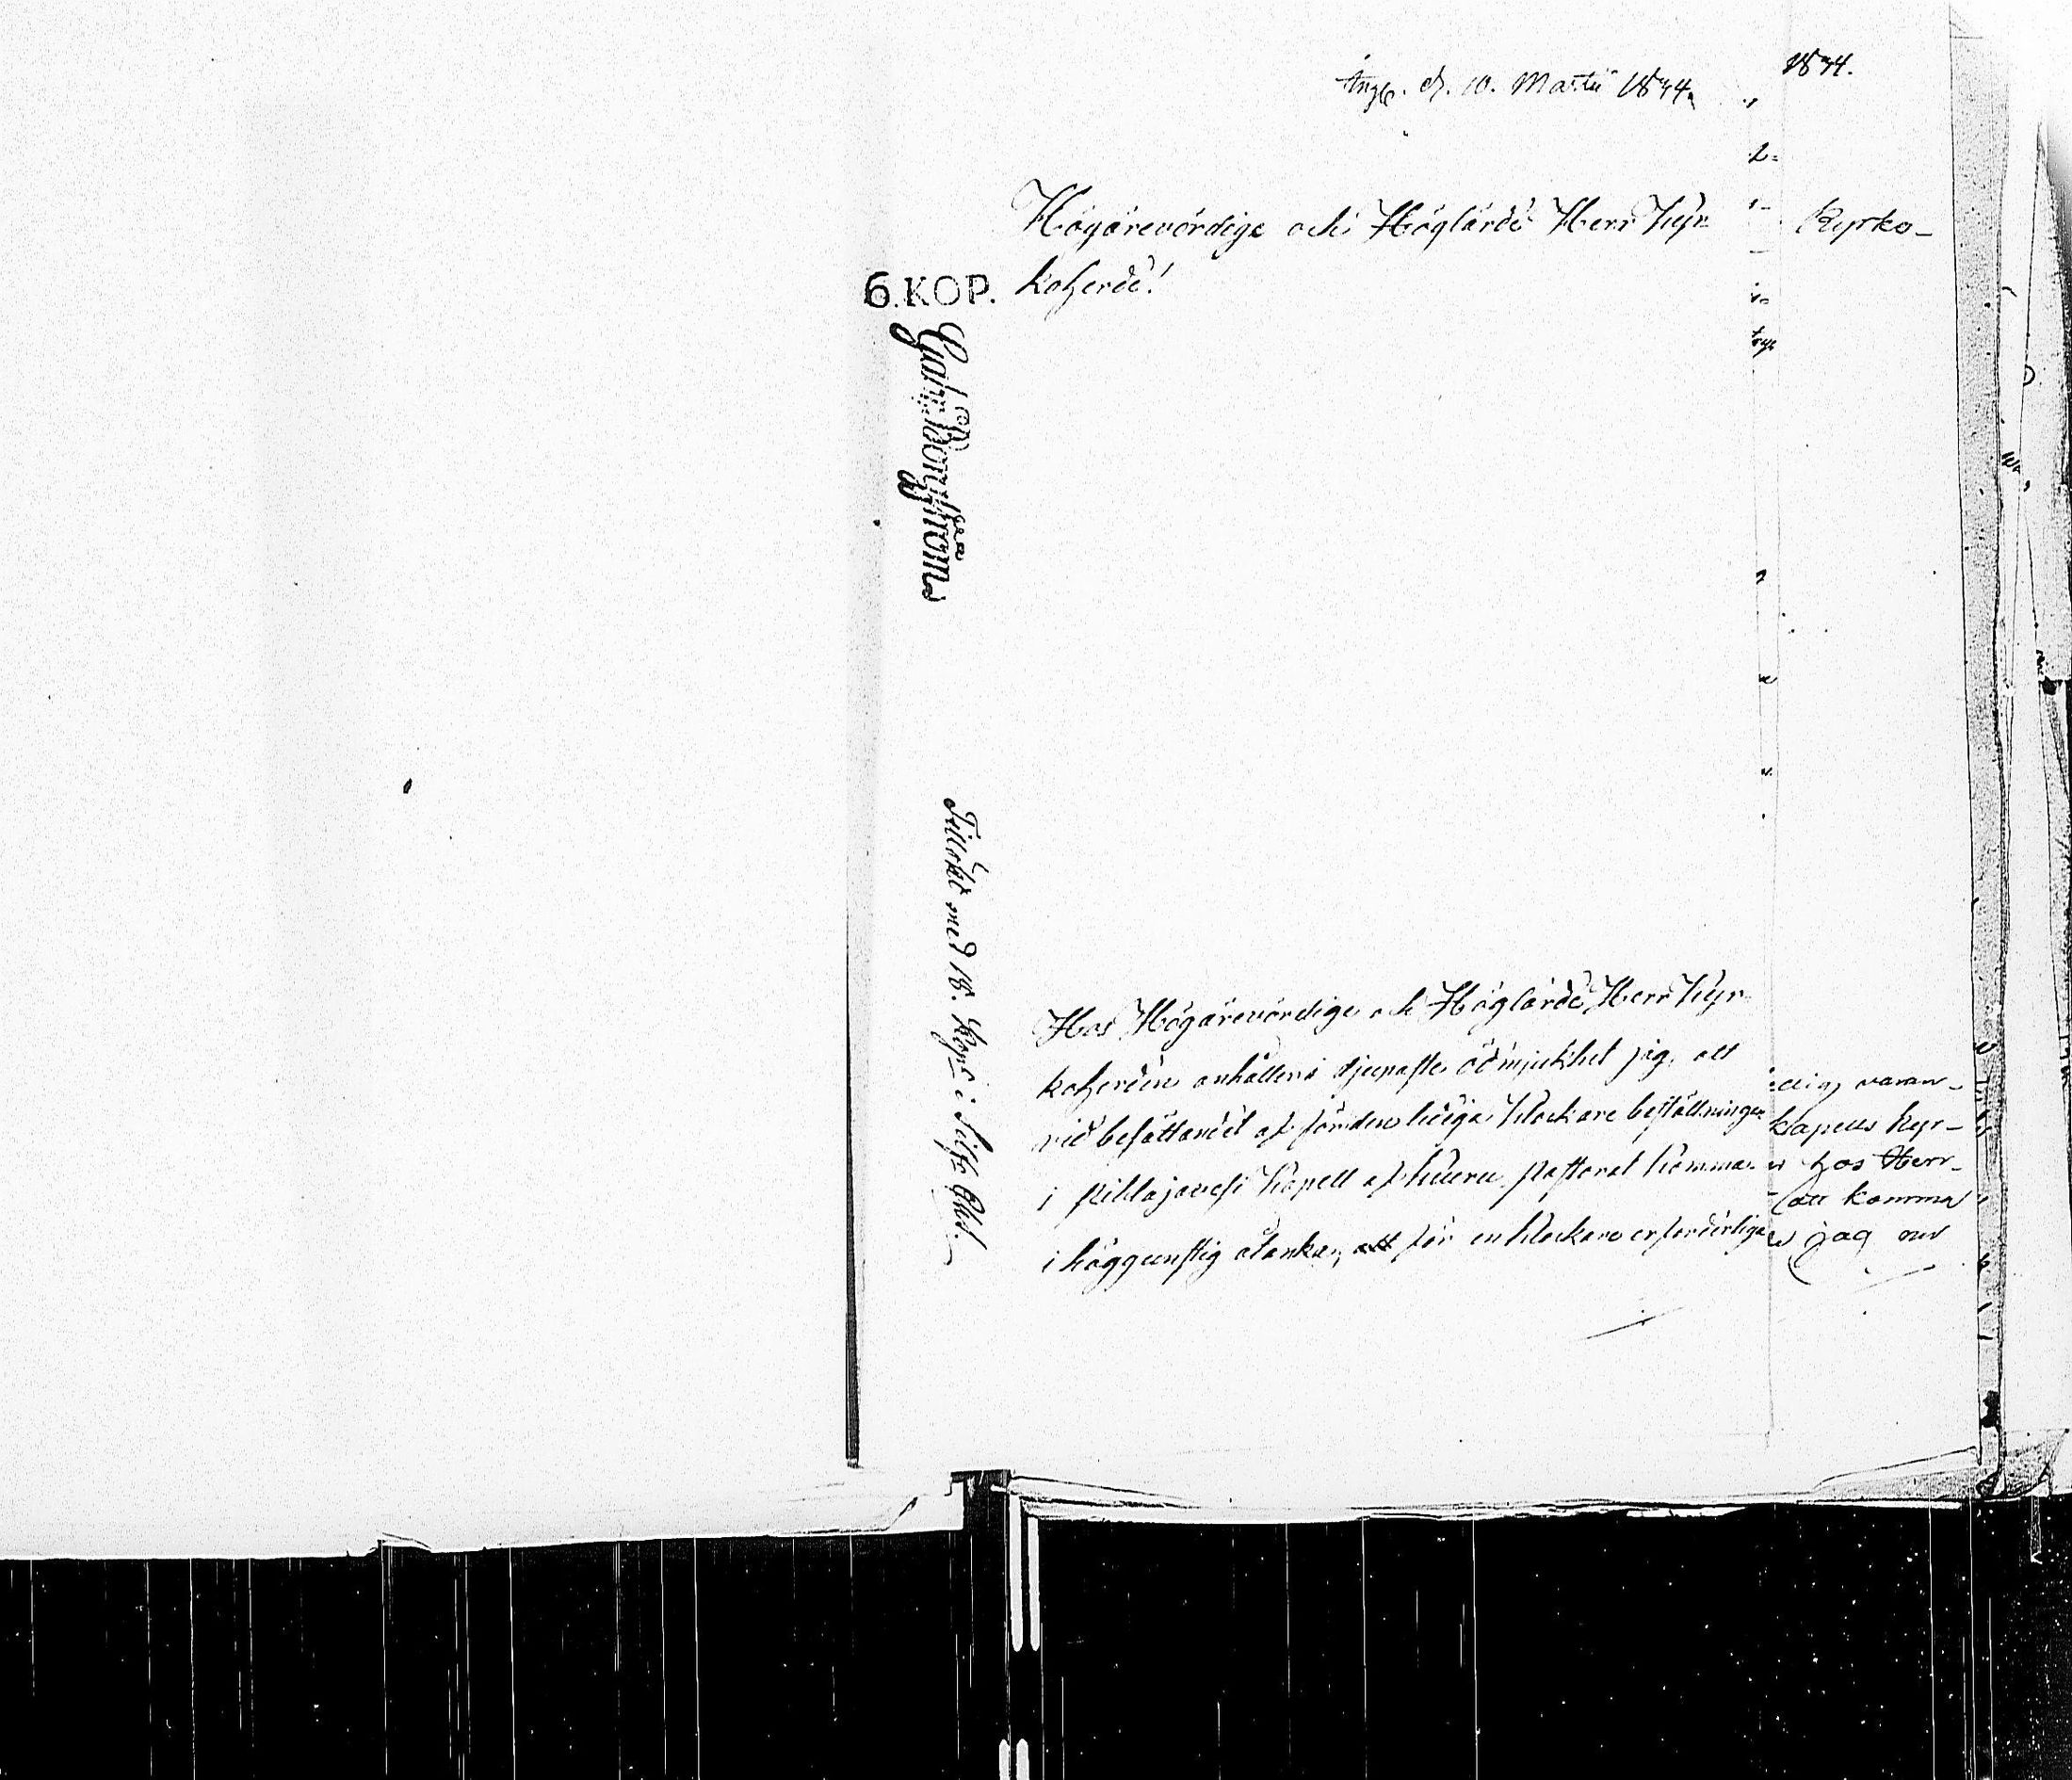 Ingl. d. 10. Martii 1844.
1844.
Högärevördige och Höglärde Herr Kyr-
koherde!
Kyrko-
6.KOP.
Gabr. Borgström
Tillökt med 18. Kop. i Silfr
Hos Högärevördige och Höglärde Herr Kyr-
koherden anhåller i djupaste ödmjukhet jag, att
vid besättandet af för den lediga klockare beställningen
i Pihlajavesi Kapell af Keuru pastorat komma
i höggunstig åtanka, att för en klockare erforderliga
varan-
kapells Kyr-
hos Herr
att komma
jag nu